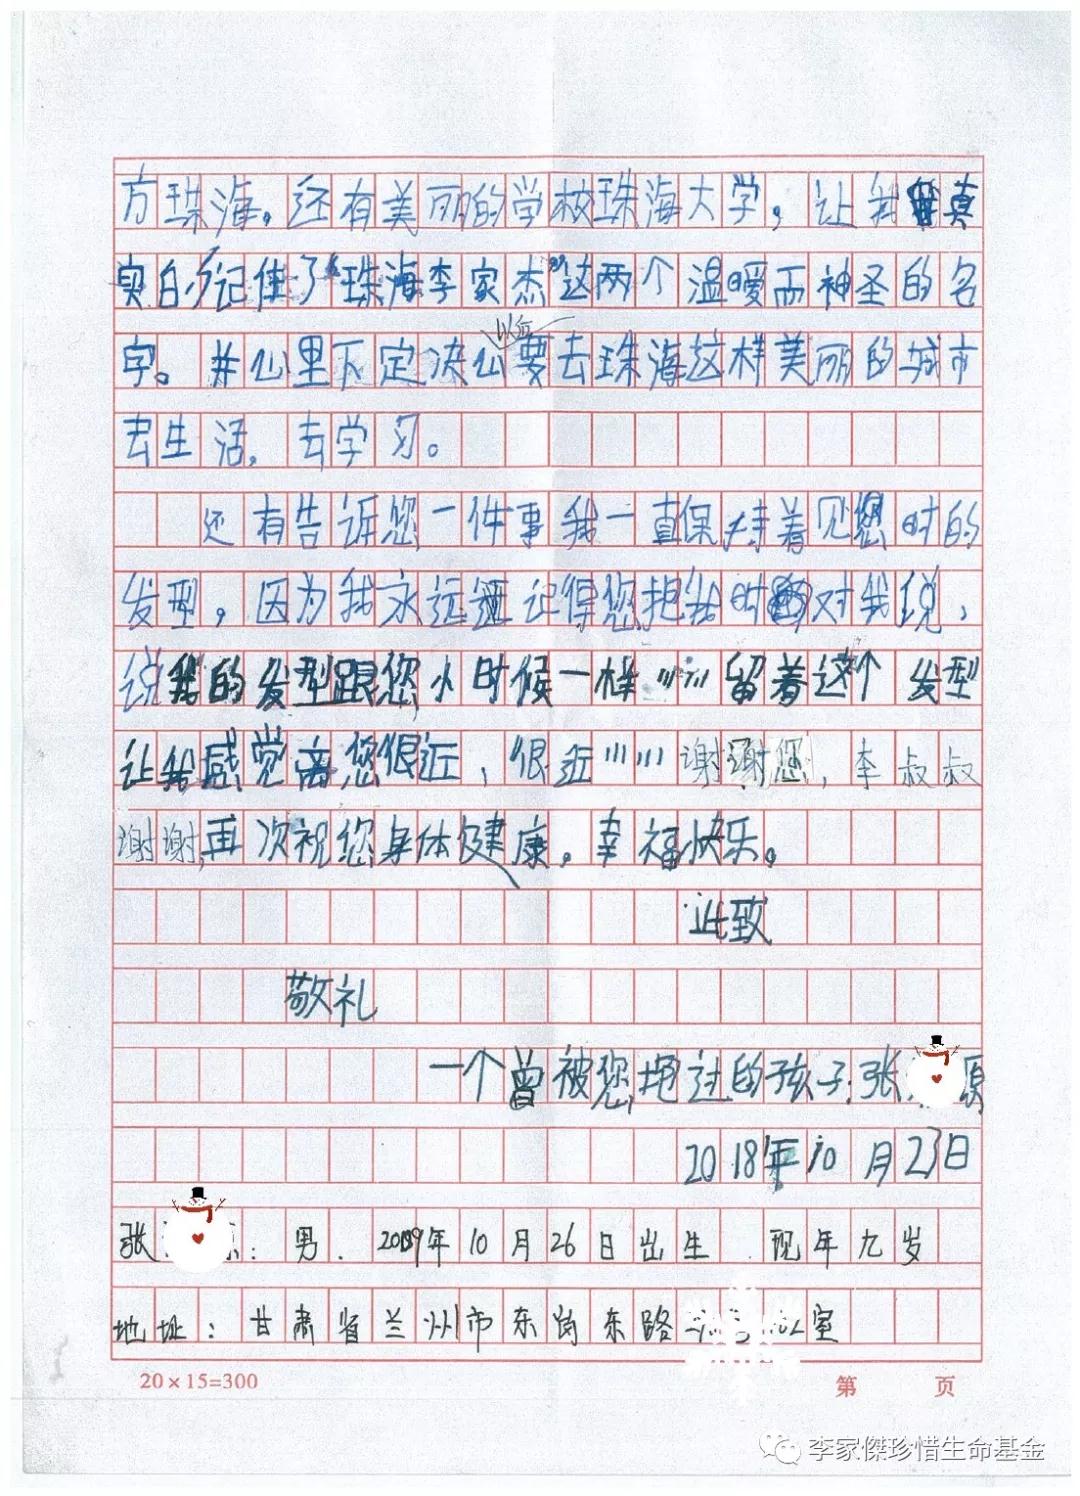 方珠海。还有美丽的学校珠海大学，让我真
实的记住了“珠海李家杰”这两个温暖而神圣的名
以后
字。并心里下定决心要去珠海这样美丽的城市
去生活，去学习。
还有告诉您一件事我一直保持着见您时的
发型，因为我永远记得您抱我时对我说，
说我的发型跟您小时候一样……留着这个发型
让我感觉离您很近，很近……谢谢您，李叔叔
谢谢，再次祝您身体健康。幸福快乐。
此致
敬礼
一个曾被您抱过的孩子：张 原
2018年10月23日
张 ：男．2009年10月26日出生．现年九岁
地址：甘肃省兰州市东岗东路 室
20×15=300 第 页
李家傑珍惜生命基金